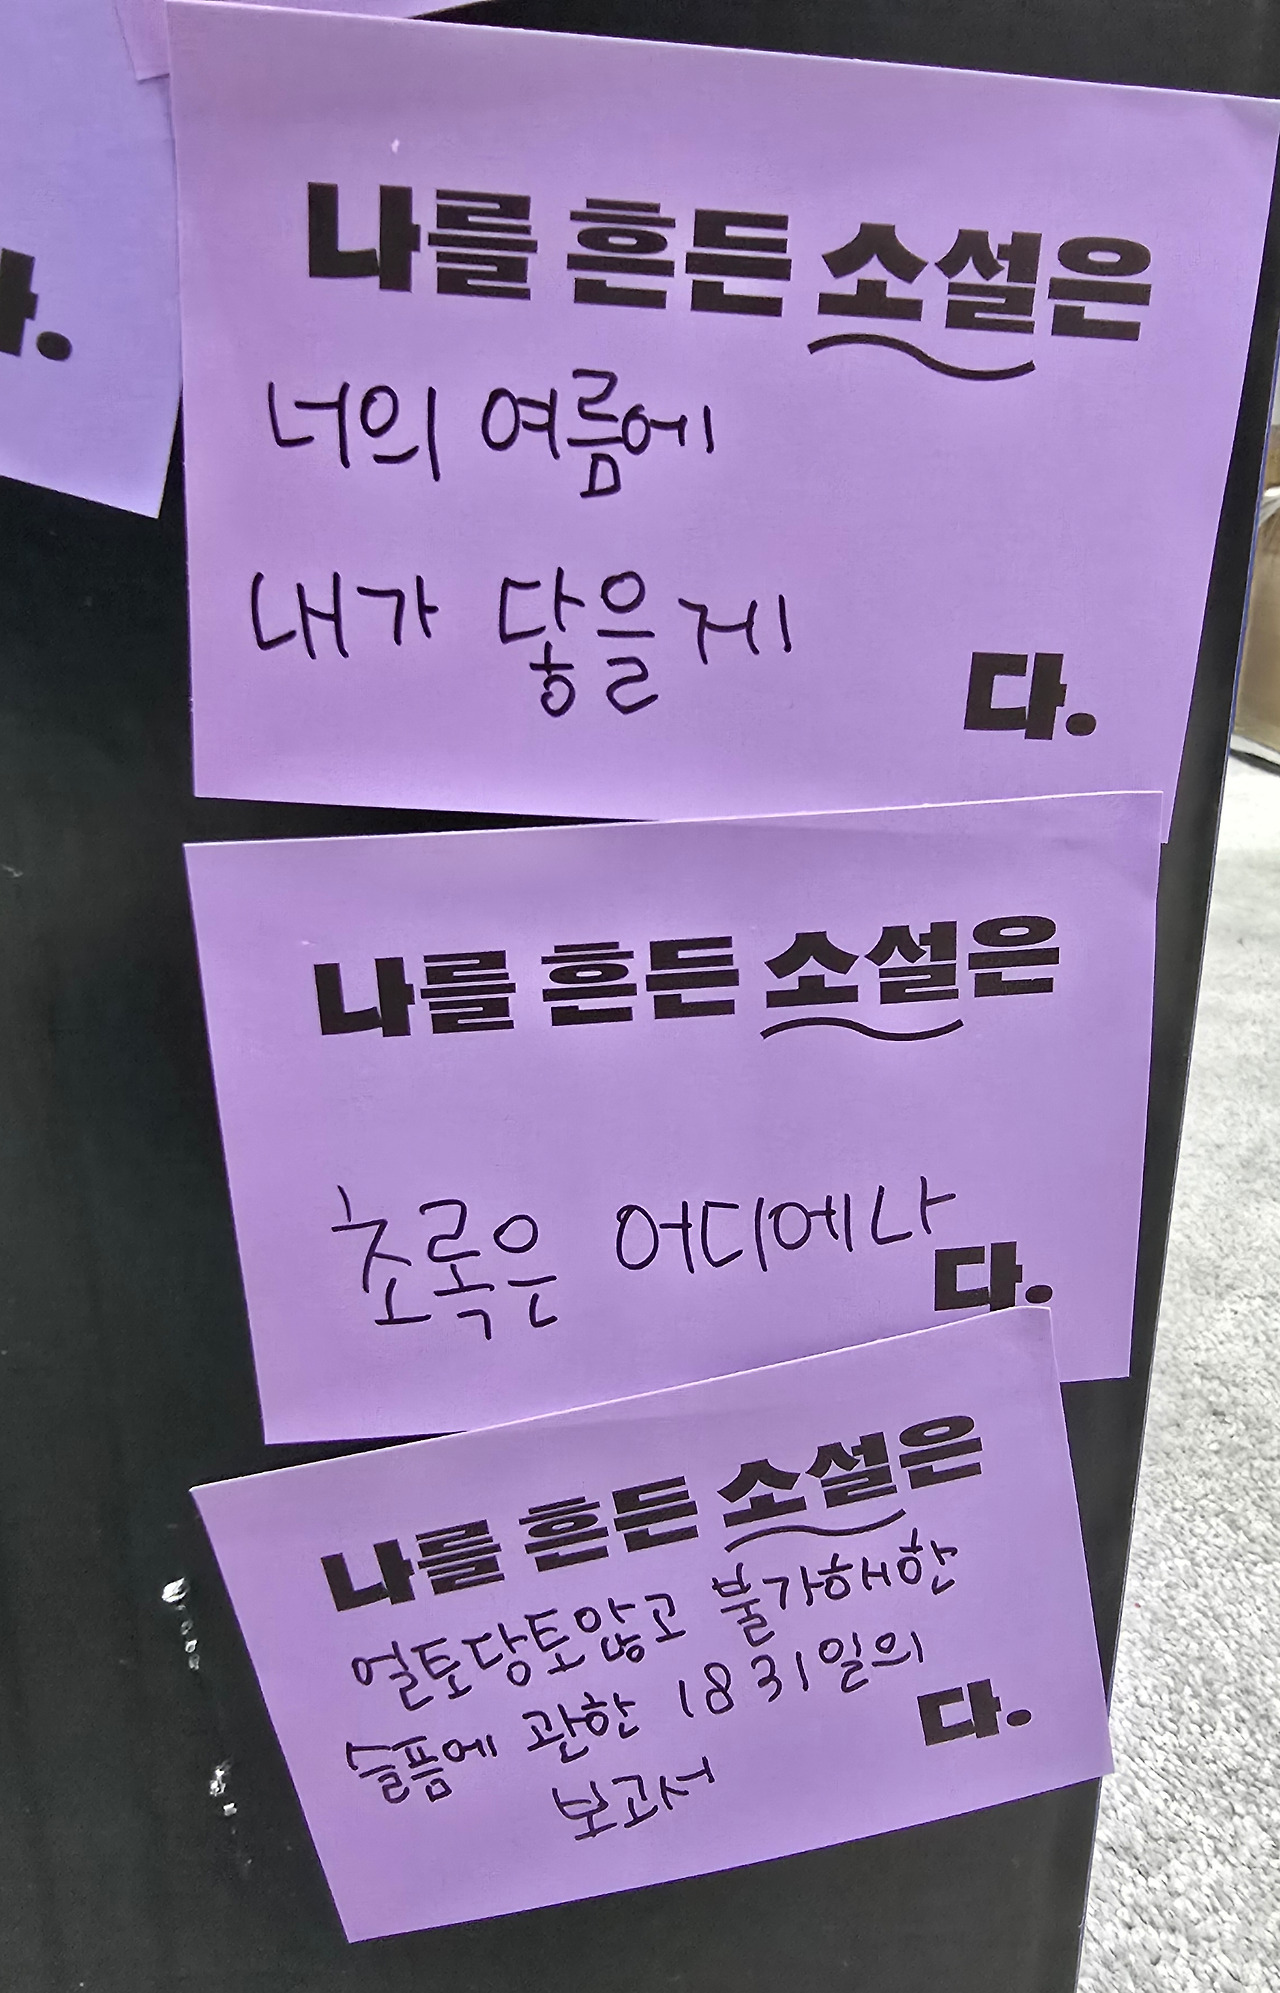 다.
나를 흔든 소설은
너의 여름에
내가 닿을게
다.
나를 흔든 소설은
초록은 어디에나
다.
나를 흔든 소설은
얼토당토않고 불가해한
슬픔에 관한 1831일의
보고서
다.